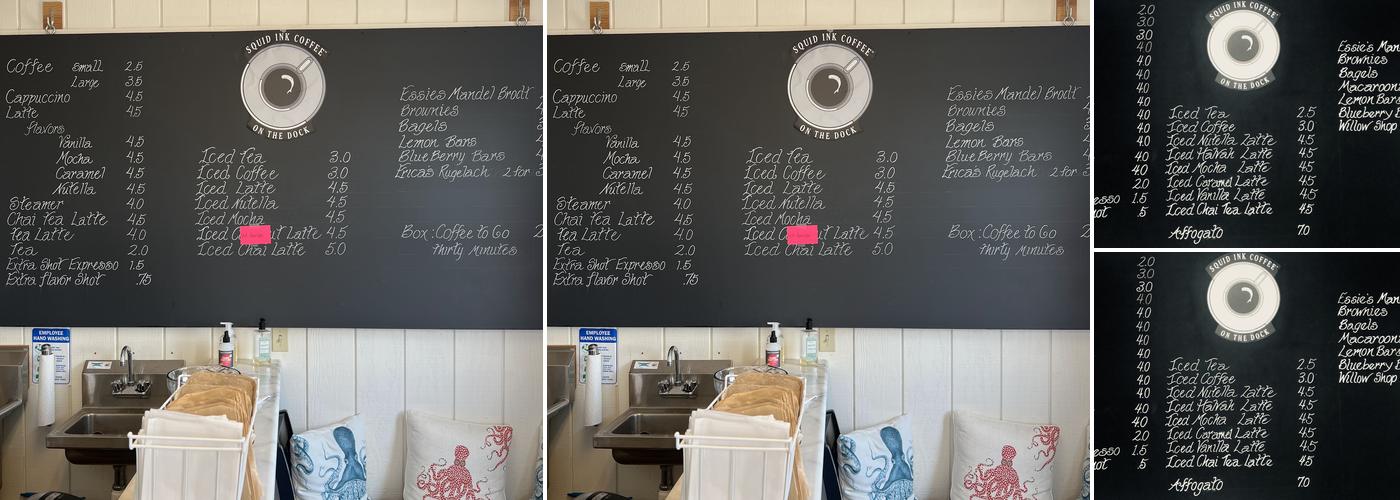 SQUID INK COFFEE
ON THE DOCK
Coffee Small 2.5
Large 3.5
Cappuccino 4.5
Latte 4.5
flavors
Vanilla 4.5
Mocha 4.5
Caramel 4.5
Nutella 4.5
Steamer 4.0
Chai Tea Latte 4.5
Tea Latte 4.0
Tea 2.0
Extra Shot Expresso 1.5
Extra flavor Shot .75
Iced Tea 3.0
Iced Coffee 3.0
Iced Latte 4.5
Iced Nutella 4.5
Iced Mocha 4.5
Iced Latte 4.5
Iced Chai Latte 5.0
Essies Mandel Brodt
Brownies
Bagels
Lemon Bars
BlueBerry Bars
Ericas Rugelach 2 for
Box: Coffee to Go 2
thirty Minutes
EMPLOYEE
HAND WASHING
SQUID INK COFFEE
ON THE DOCK
Coffee Small 2.5
Large 3.5
Cappuccino 4.5
Latte 4.5
flavors
Vanilla 4.5
Mocha 4.5
Caramel 4.5
Nutella 4.5
Steamer 4.0
Chai Tea Latte 4.5
Tea Latte 4.0
Tea 2.0
Extra Shot Expresso 1.5
Extra flavor Shot .75
Iced Tea 3.0
Iced Coffee 3.0
Iced Latte 4.5
Iced Nutella 4.5
Iced Mocha 4.5
Iced Latte 4.5
Iced Chai Latte 5.0
Essies Mandel Brodt
Brownies
Bagels
Lemon Bars
BlueBerry Bars
Ericas Rugelach 2 for
Box: Coffee to Go 2
thirty Minutes
EMPLOYEE
HAND WASHING
SQUID INK COFFEE
ON THE DOCK
2.0
3.0
3.0
4.0
4.0
4.0
4.0
4.0
4.0
4.0
4.0
4.0
4.0
2.0
esso 1.5
hot .5
Iced Tea 2.5
Iced Coffee 3.0
Iced Nutella Latte 4.5
Iced Halvah Latte 4.5
Iced Mocha Latte 4.5
Iced Caramel Latte 4.5
Iced Vanilla Latte 4.5
Iced Chai Tea Latte 4.5
Affogato 7.0
Essie's Man
Brownies
Bagels
Macaroon
Lemon Bars
Blueberry B
Willow Shop
SQUID INK COFFEE
ON THE DOCK
2.0
3.0
3.0
4.0
4.0
4.0
4.0
4.0
4.0
4.0
4.0
4.0
4.0
2.0
esso 1.5
hot .5
Iced Tea 2.5
Iced Coffee 3.0
Iced Nutella Latte 4.5
Iced Halvah Latte 4.5
Iced Mocha Latte 4.5
Iced Caramel Latte 4.5
Iced Vanilla Latte 4.5
Iced Chai Tea Latte 4.5
Affogato 7.0
Essie's Man
Brownies
Bagels
Macaroon
Lemon Bars
Blueberry B
Willow Shop